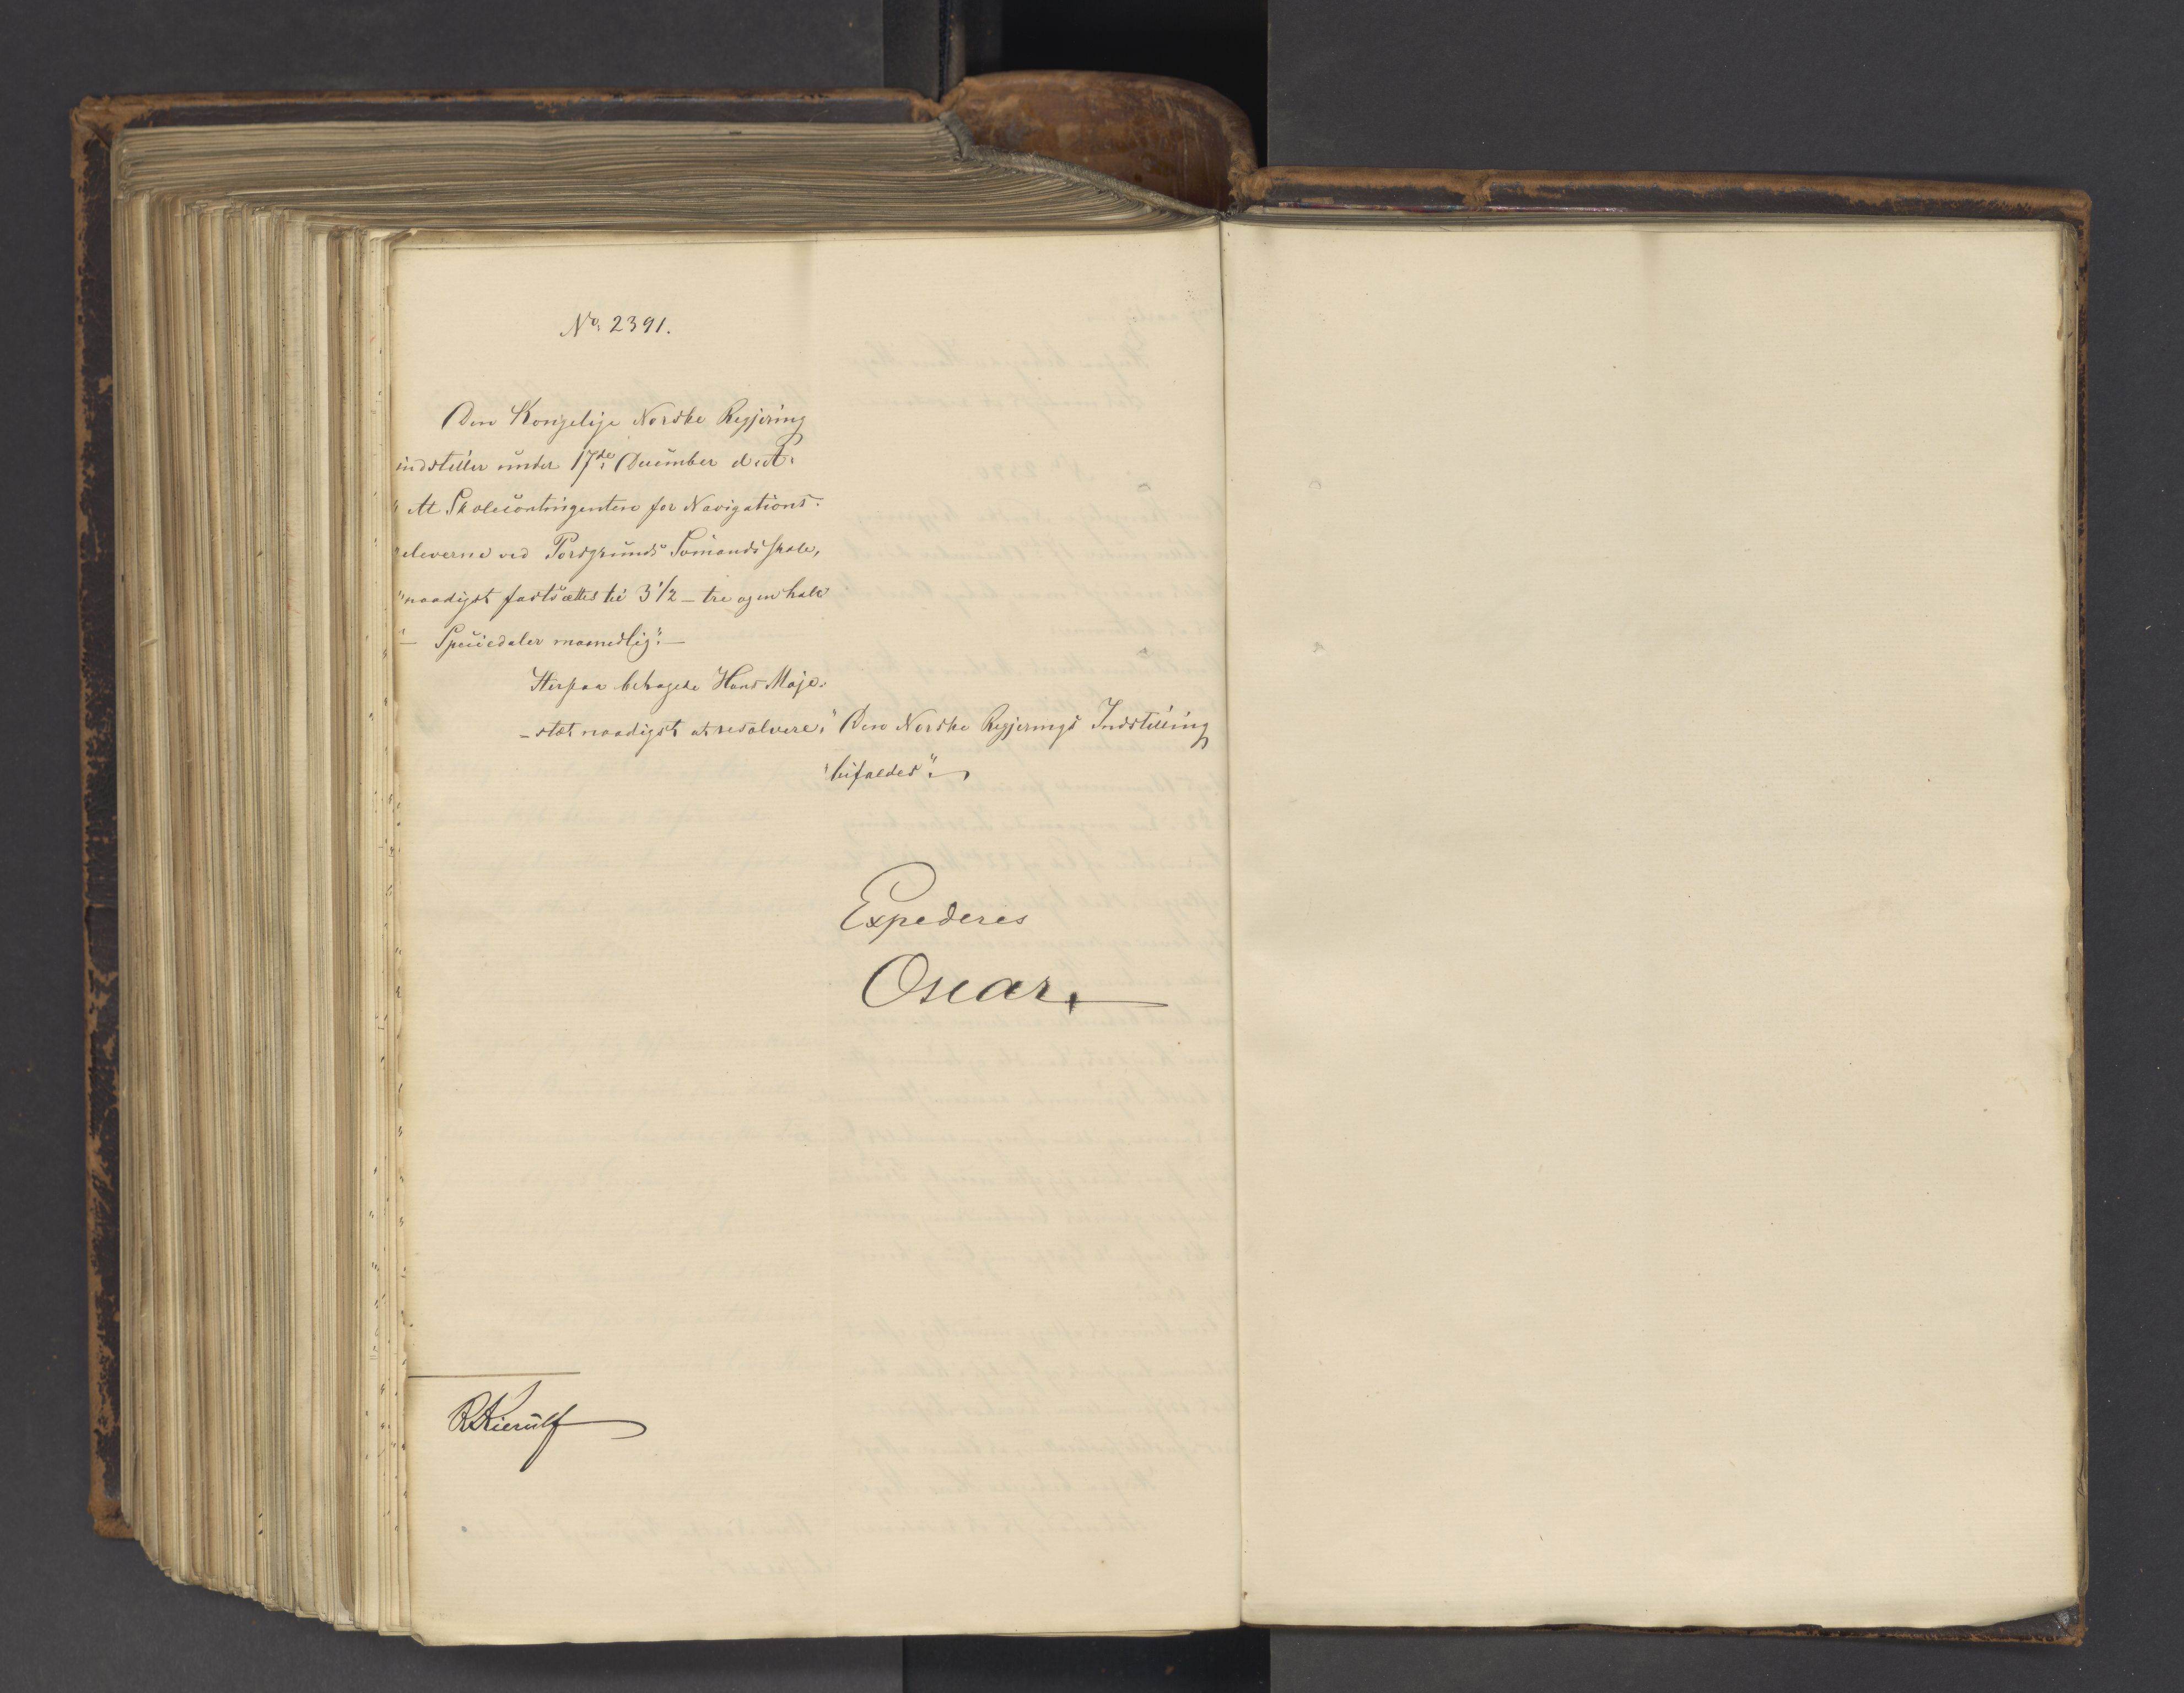 No. 2391.
Den Kongelige Norske Regjering
indstiller under 17de December d. A.
"At Skolecontingenten for Navigations-
"eleverne ved Porsgrunds Sømandsskole,
"naadigst fastsættes til 3 1/2 – tre og en halv
"– Speciedaler maanedlig". –
Herpaa behagede Hans Maje-
-stæt naadigst at resolvere: "Den Norske Regjerings Indstilling
"bifaldes".
Expederes
Oscar.
R Kierulf